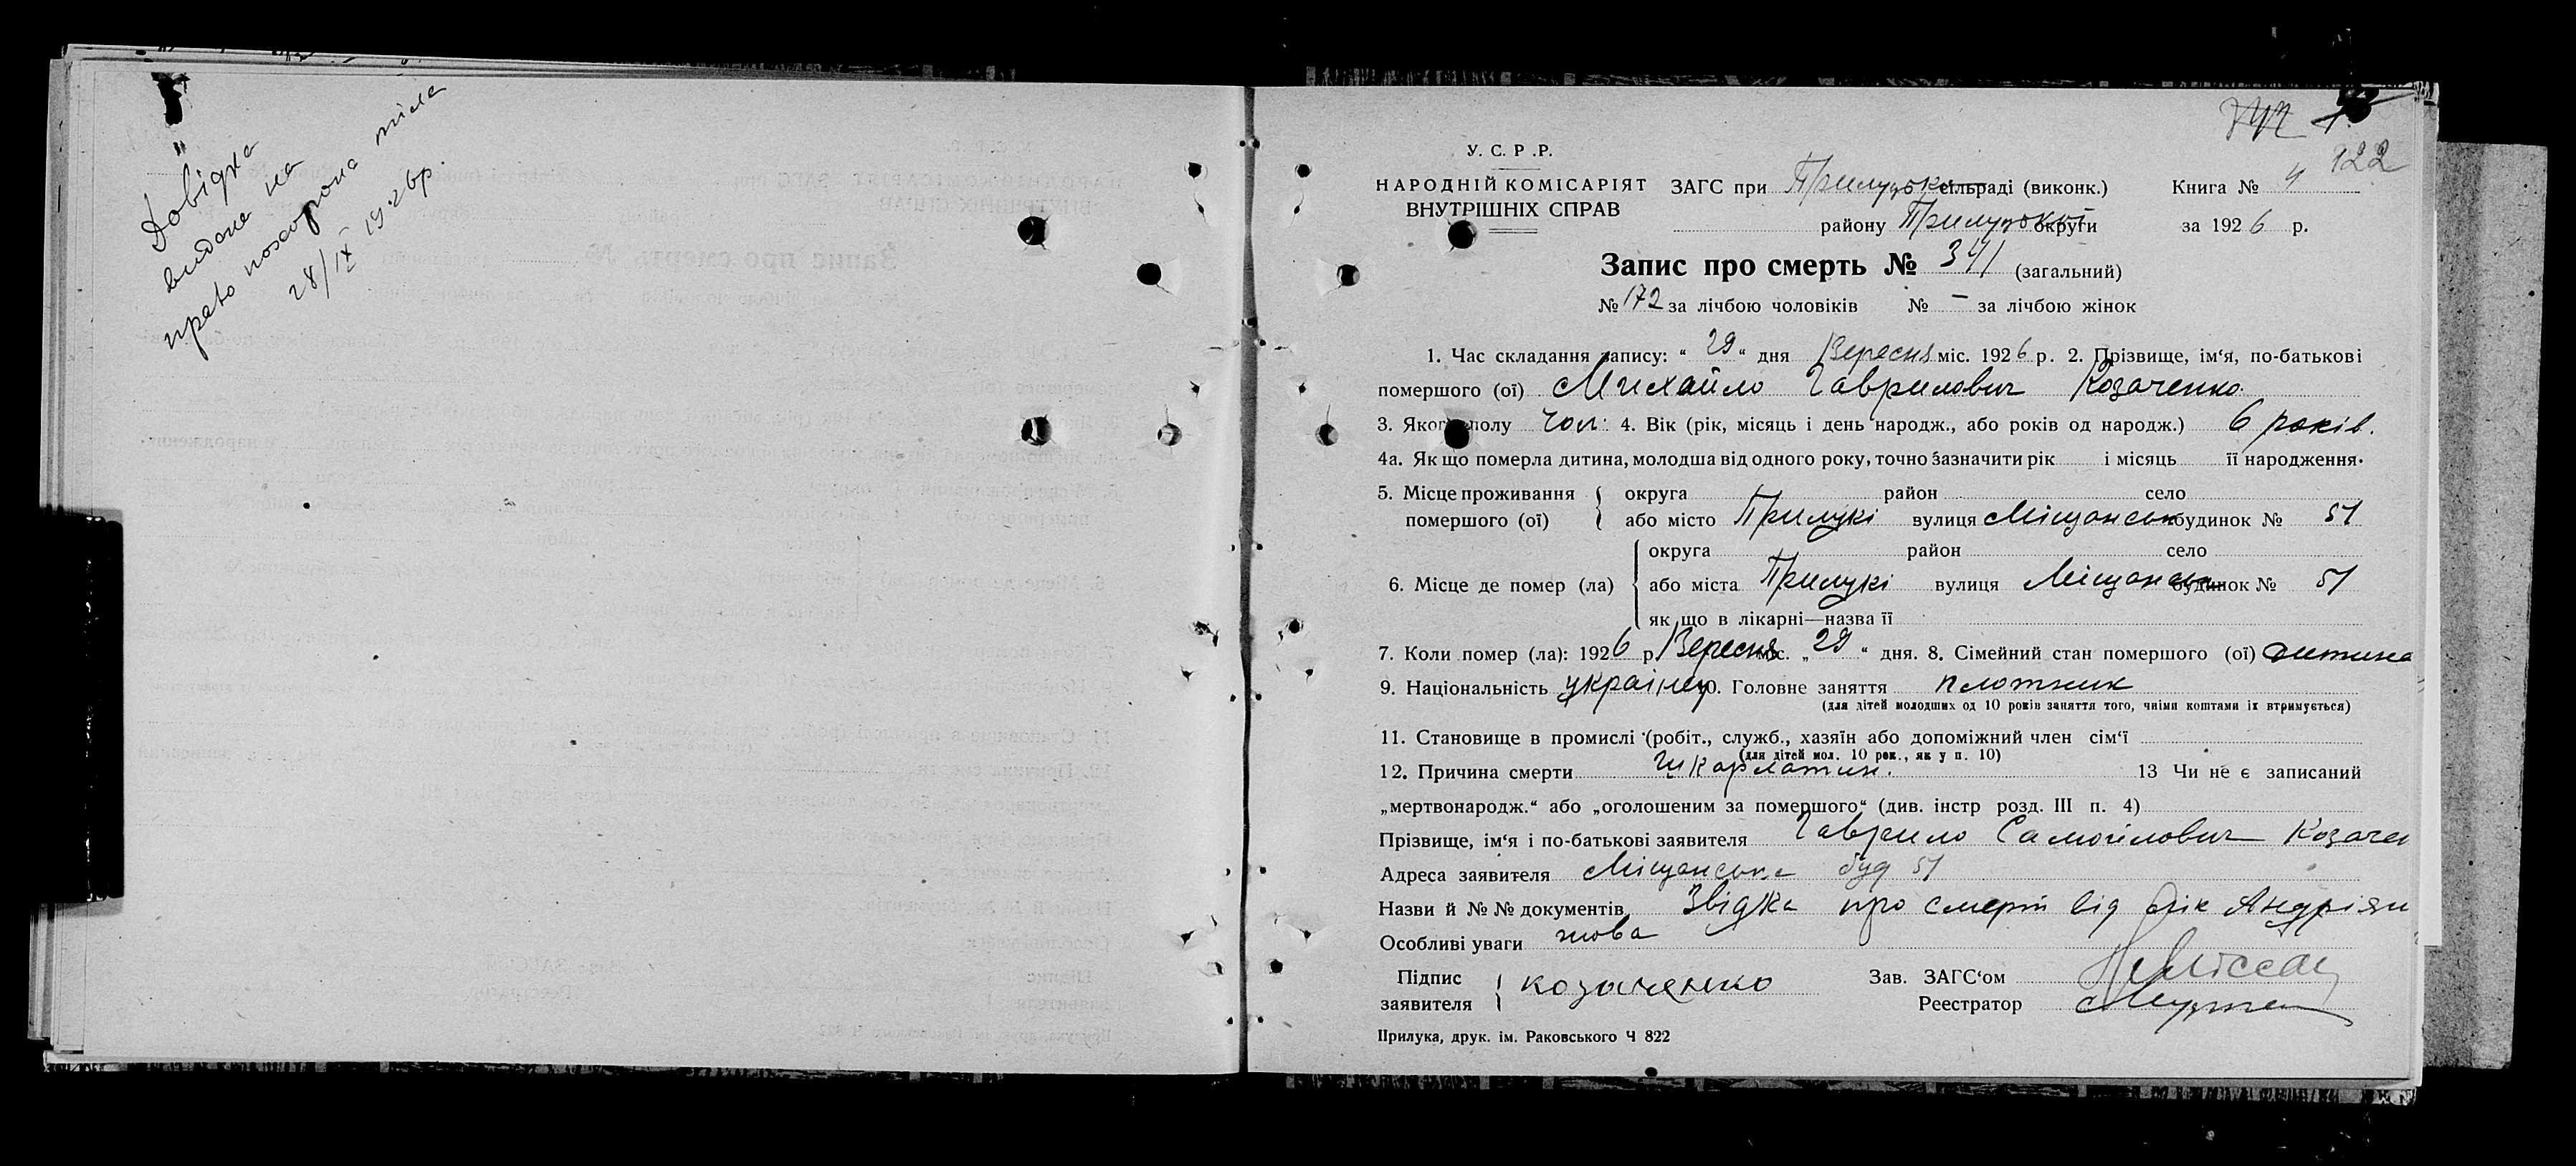 Довідка
видана на
право похорона тіла
28/IX 1926р.
122
У. С. Р. Р.
НАРОДНІЙ КОМІСАРІЯТ
ВНУТРІШНІХ СПРАВ
ЗАГС при Прилуцькі сільраді (виконк.)
Книга № 4
району Прилуцької округи
за 1926 р.
Запис про смерть № 341 (загальний)
№ 172 за лічбою чоловіків № – за лічбою жінок
1. Час складання запису: “ 29 “ дня Вересня міс. 1926 р. 2. Прізвище, ім‘я, по-батькові
помершого (ої) Михайло Гаврилович Козаченко
3. Якого полу чол. 4. Вік (рік, місяць і день народж., або років од народж.) 6 років.
4а. Як що померла дитина, молодша від одного року, точно зазначити рік і місяць її народження.
5. Місце проживання помершого (ої) { округа район село
або місто Прилукі вулиця Міщанськ будинок № 51
6. Місце де помер (ла) { округа район село
або міста Прилукі вулиця Міщанська будинок № 51
як що в лікарні—назва її
7. Коли помер (ла): 1926 р. Вересня міс. „ 29 “ дня. 8. Сімейний стан помершого (ої) дитина
9. Національність українц 10. Головне заняття плотник
(для дітей молодших од 10 років заняття того, чиїми коштами їх втримується)
11. Становище в промислі (робіт., служб., хазяїн або допоміжний член сім‘ї
(для дітей мол. 10 рок., як у п. 10)
12. Причина смерти Шкарлатин. 13 Чи не є записаний
„мертвонародж.“ або „оголошеним за помершого“ (див. інстр розд. III п. 4)
Прізвище, ім‘я і по-батькові заявителя Гаврило Самойлович Козачен
Адреса заявителя Міщанська буд 51
Назви й №№ документів Звідка про смерт від лік Андріян
Особливі уваги това
Підпис заявителя { козаченко
Зав. ЗАГС‘ом
Реестратор
Прилука, друк. ім. Раковського Ч 822